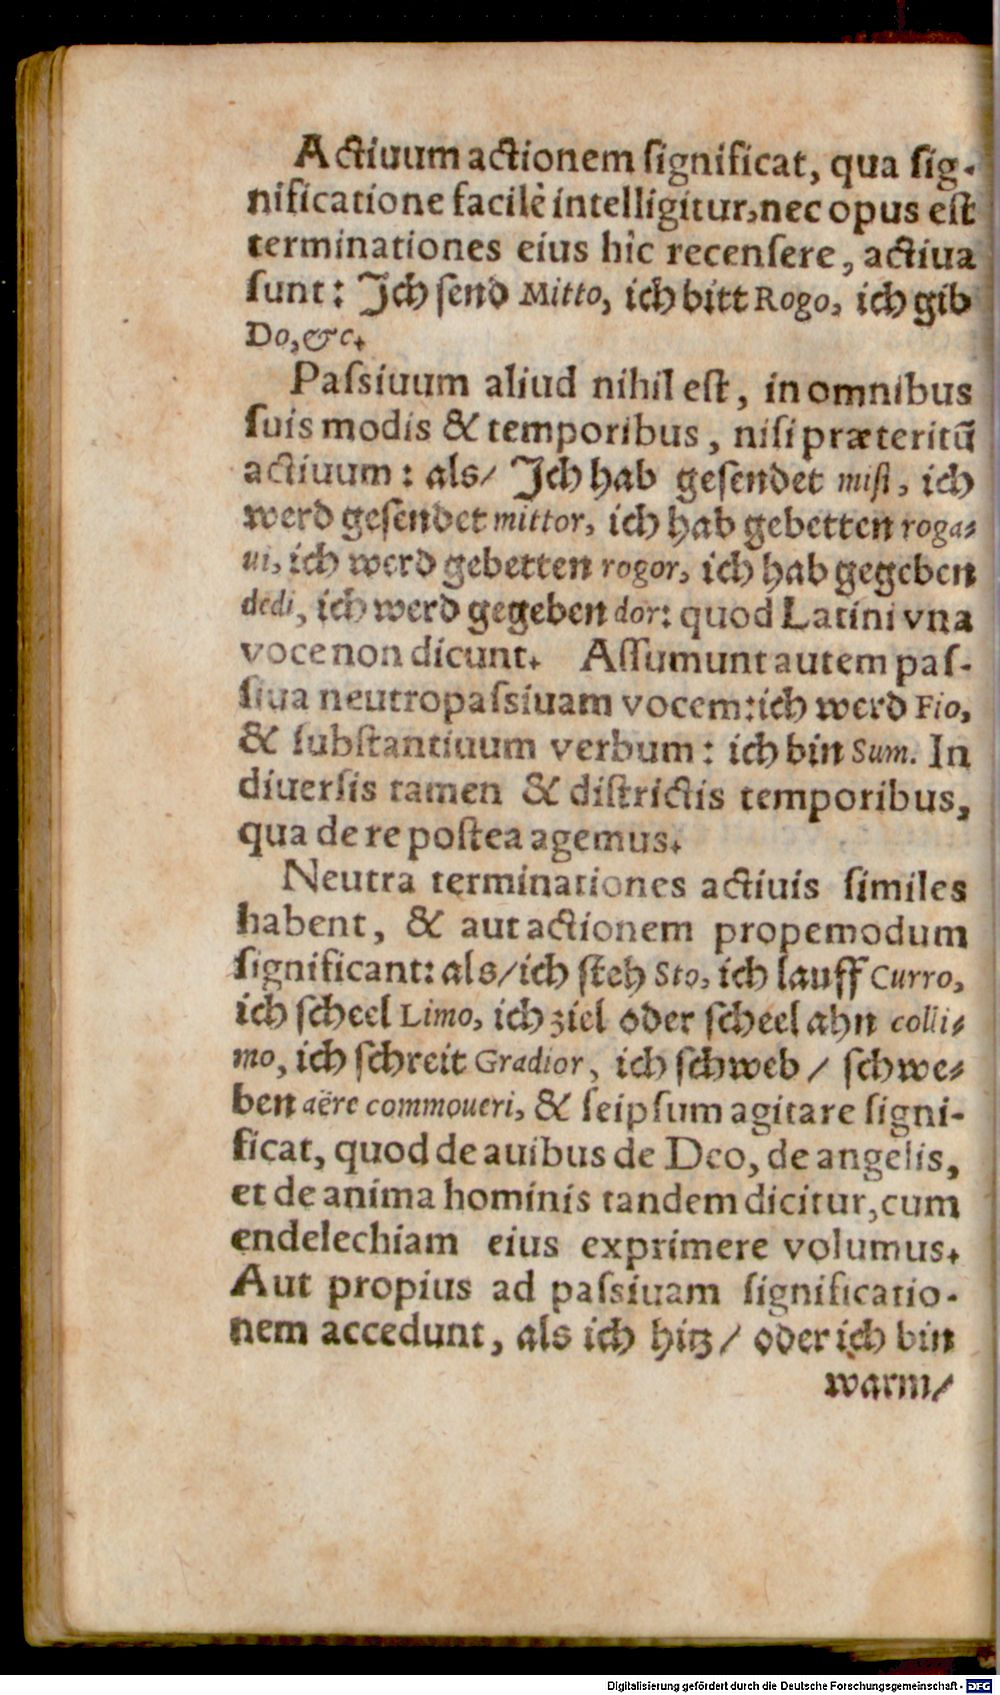 Actiuum actionem ſignificat, qua ſig-
nificatione facilè intelligitur, nec opus eſt
terminationes eius hîc recenſere, actiua
ſunt: Jch ſend Mitto, ich bitt Rogo, ich gib
Do, &c.
Paſsiuum aliud nihil eſt, in omnibus
ſuis modis & temporibus, niſi præteritũ
actiuum: als/ Jch hab geſendet miſi, ich
werd geſendet mittor, ich hab gebetten roga-
ui, ich werd gebetten rogor, ich hab gegeben
dedi, ich werd gegeben dor: quod Latini vna
voce non dicunt. Aſſumunt autem paſ-
ſiua neutropaſsiuam vocem: ich werd Fio,
& ſubſtantiuum verbum: ich bin Sum. In
diuerſis tamen & diſtrictis temporibus,
qua de re poſtea agemus.
Neutra terminationes actiuis ſimiles
habent, & aut actionem propemodum
ſignificant: als/ ich ſteh Sto, ich lauff Curro,
ich ſcheel Limo, ich ziel oder ſcheel ahn colli-
mo, ich ſchreit Gradior, ich ſchweb / ſchwe-
ben aëre commoueri, & ſeipſum agitare ſigni-
ficat, quod de auibus de Deo, de angelis,
et de anima hominis tandem dicitur, cum
endelechiam eius exprimere volumus.
Aut propius ad paſsiuam ſignificatio-
nem accedunt, als ich hitz / oder ich bin
warm/
Digitalisierung gefördert durch die Deutsche Forschungsgemeinschaft - DFG